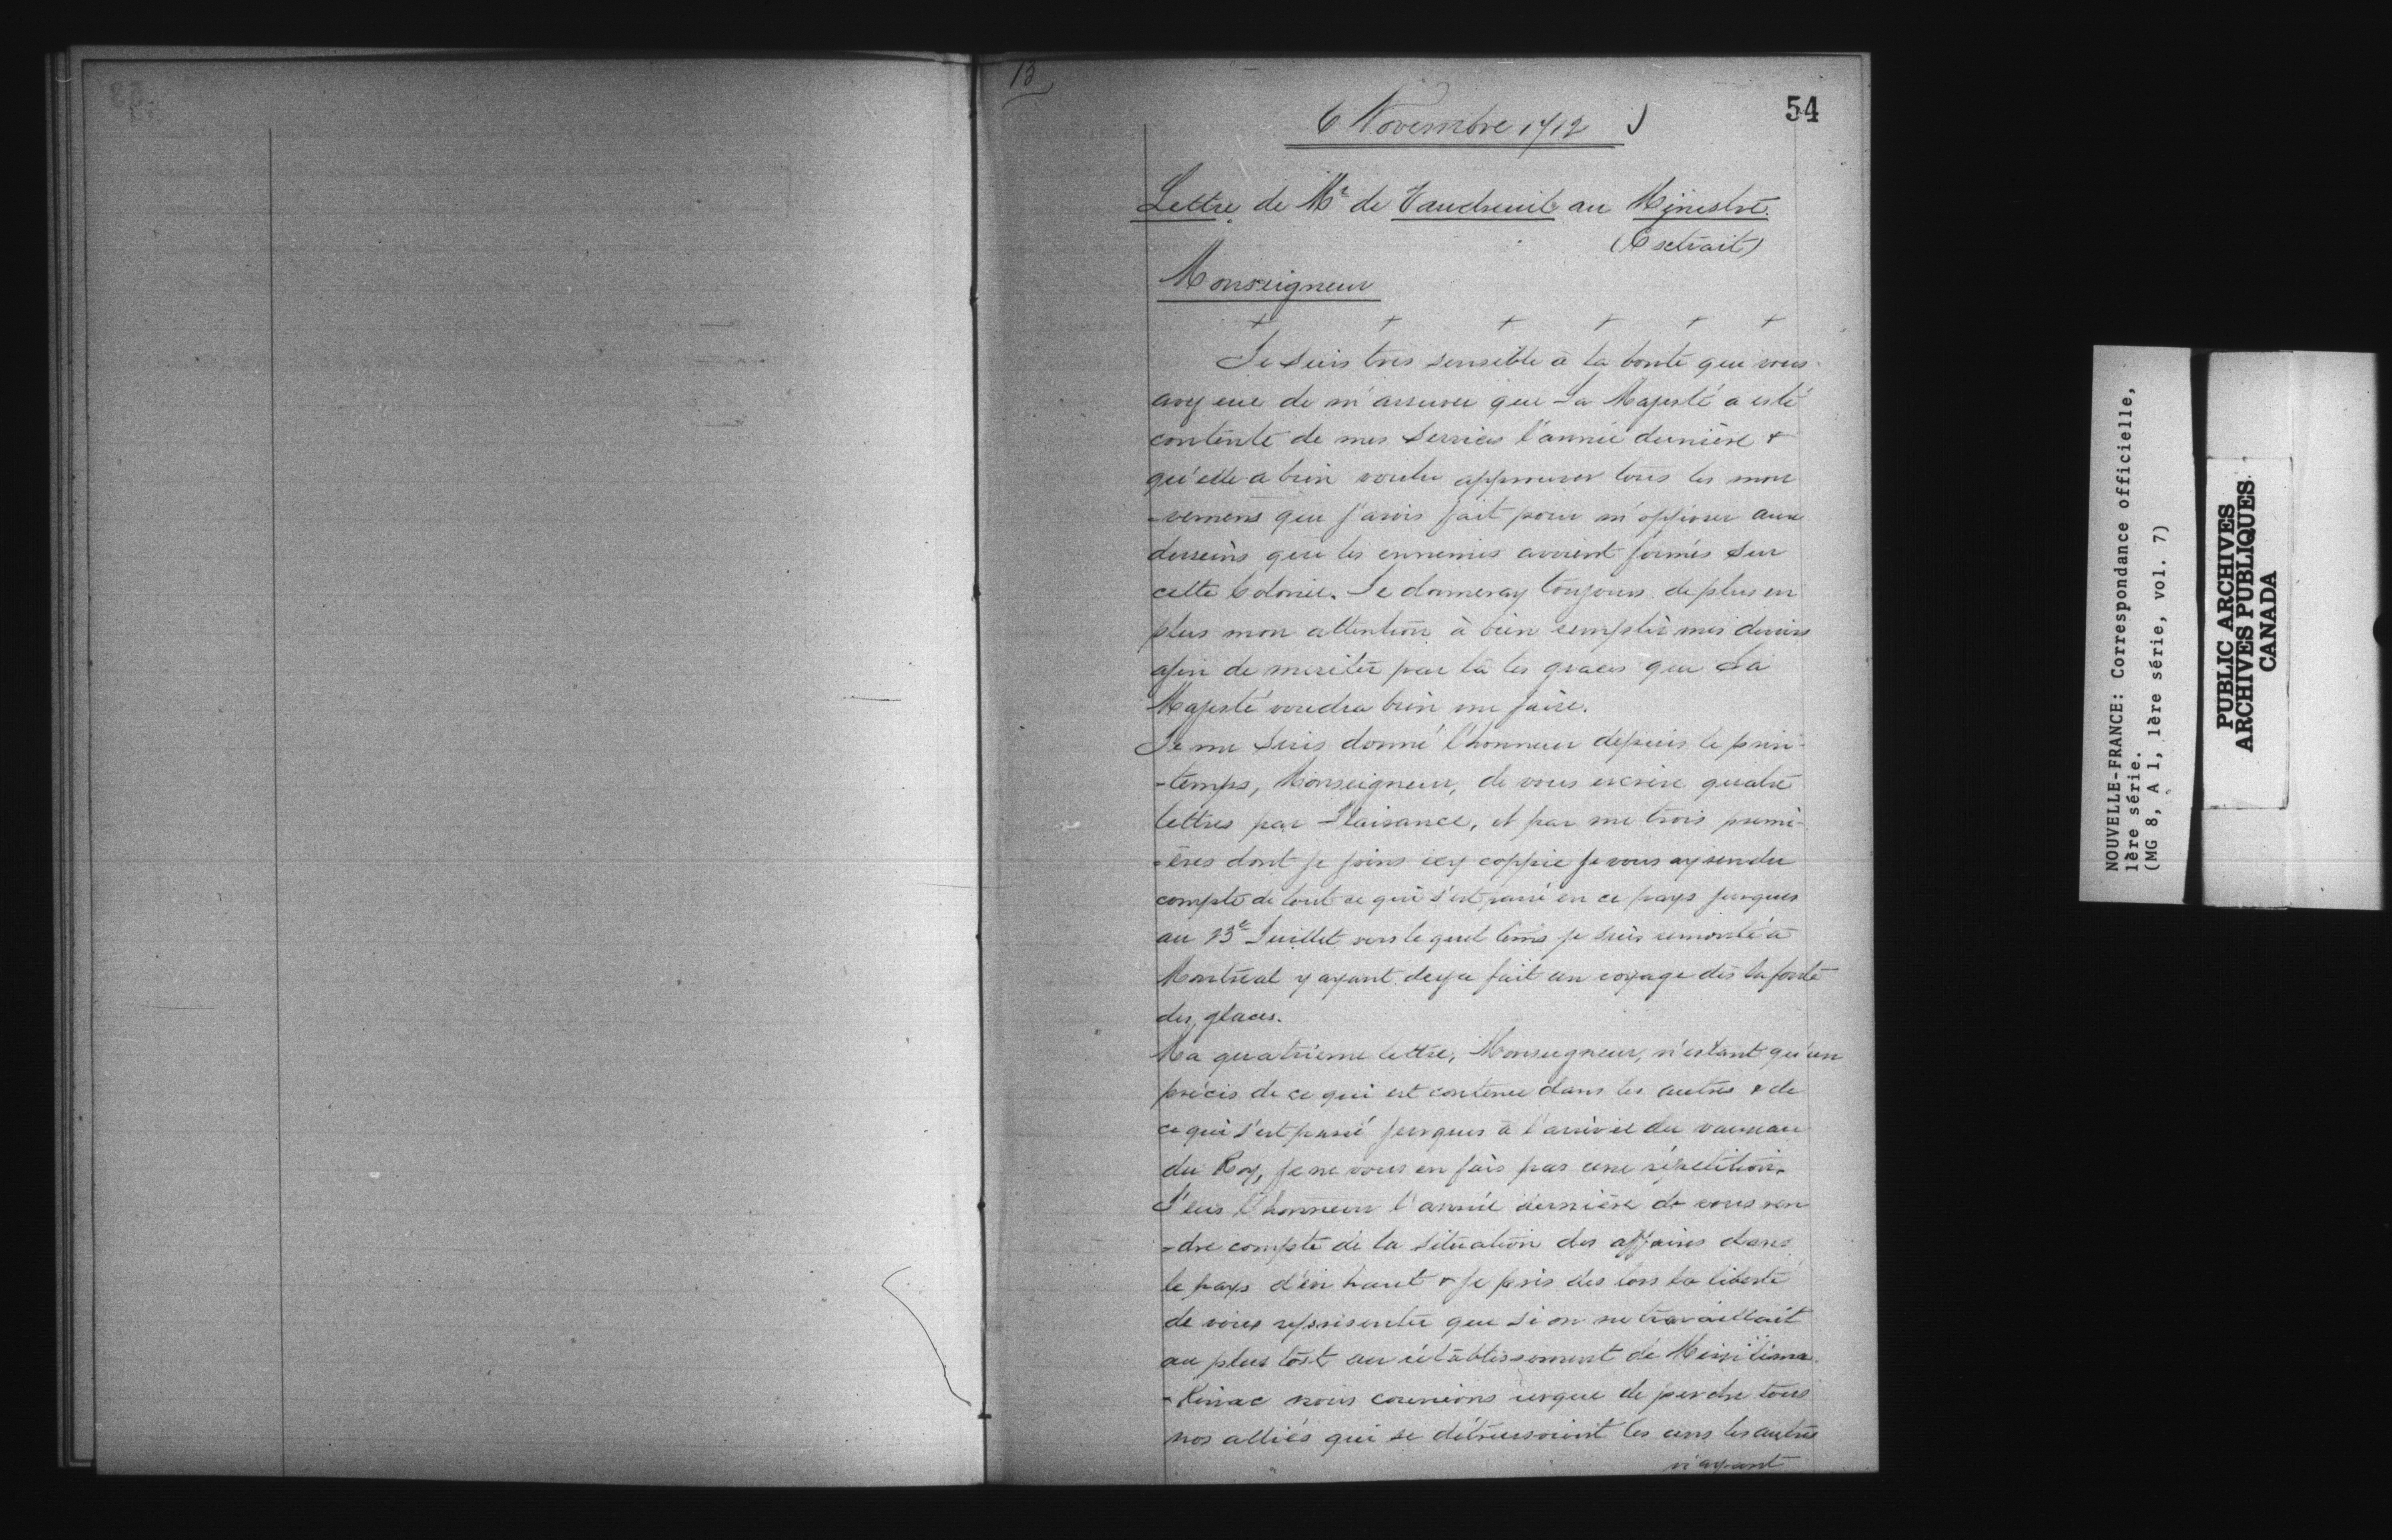 13
54
6 Novembre 1712
Lettre de Mr de Vaudreuil au Ministre
(Extrait)
Monseigneur
+ + + + + +
Je suis tres sensible à la bonté que vous
avez eue de m'assurer que Sa Majesté a esté
contente de mes services l'année dernière &
qu'elle a bien voulu approuver tous les mou
-vemens que j'avois fait pour m'opposer aux
desseins que les ennemis avoient formés sur
cette Colonie. Je donneray toujours de plus en
plus mon attention à bien remplir mes devoirs
afin de meriter par là les graces que Sa
Majesté voudra bien me faire.
Je me suis donné l'honneur depuis le prin-
-temps, Monseigneur, de vous escrire quatre
lettres par Plaisance, et par me trois premi-
-ères dont je joins icy coppie je vous ay rendu
compte de tout ce qui s'est passé en ce pays jusques
au 23e Juillet vers lequel tems je suis remonté à
Montréal y ayant deja fait un voyage dès la fonte
des glaces.
Ma quatrieme lettre, Monseigneur, n'estant qu'un
précis de ce qui est contenu dans les autres & de
ce qui s'est passé jusques à l'arrivée du vaisseau
du Roy, je ne vous en fais pas une répétition.
J'eus l'honneur l'année dernière de vous ren
-dre compte de la situation des affaires dans
le pays d'en haut & je pris dès lors la liberté
de vous représenter que si on ne travaillait
au plus tost au rétablissement de Missilima
-Kinac nous courrions risque de perdre tous
nos alliés qui se détruisoient les uns les autres
n'ayant
NOUVELLE-FRANCE: Correspondance officielle,
1ère série.
(MG 8, A 1, 1ère série, vol. 7)
PUBLIC ARCHIVES
ARCHIVES PUBLIQUES
CANADA